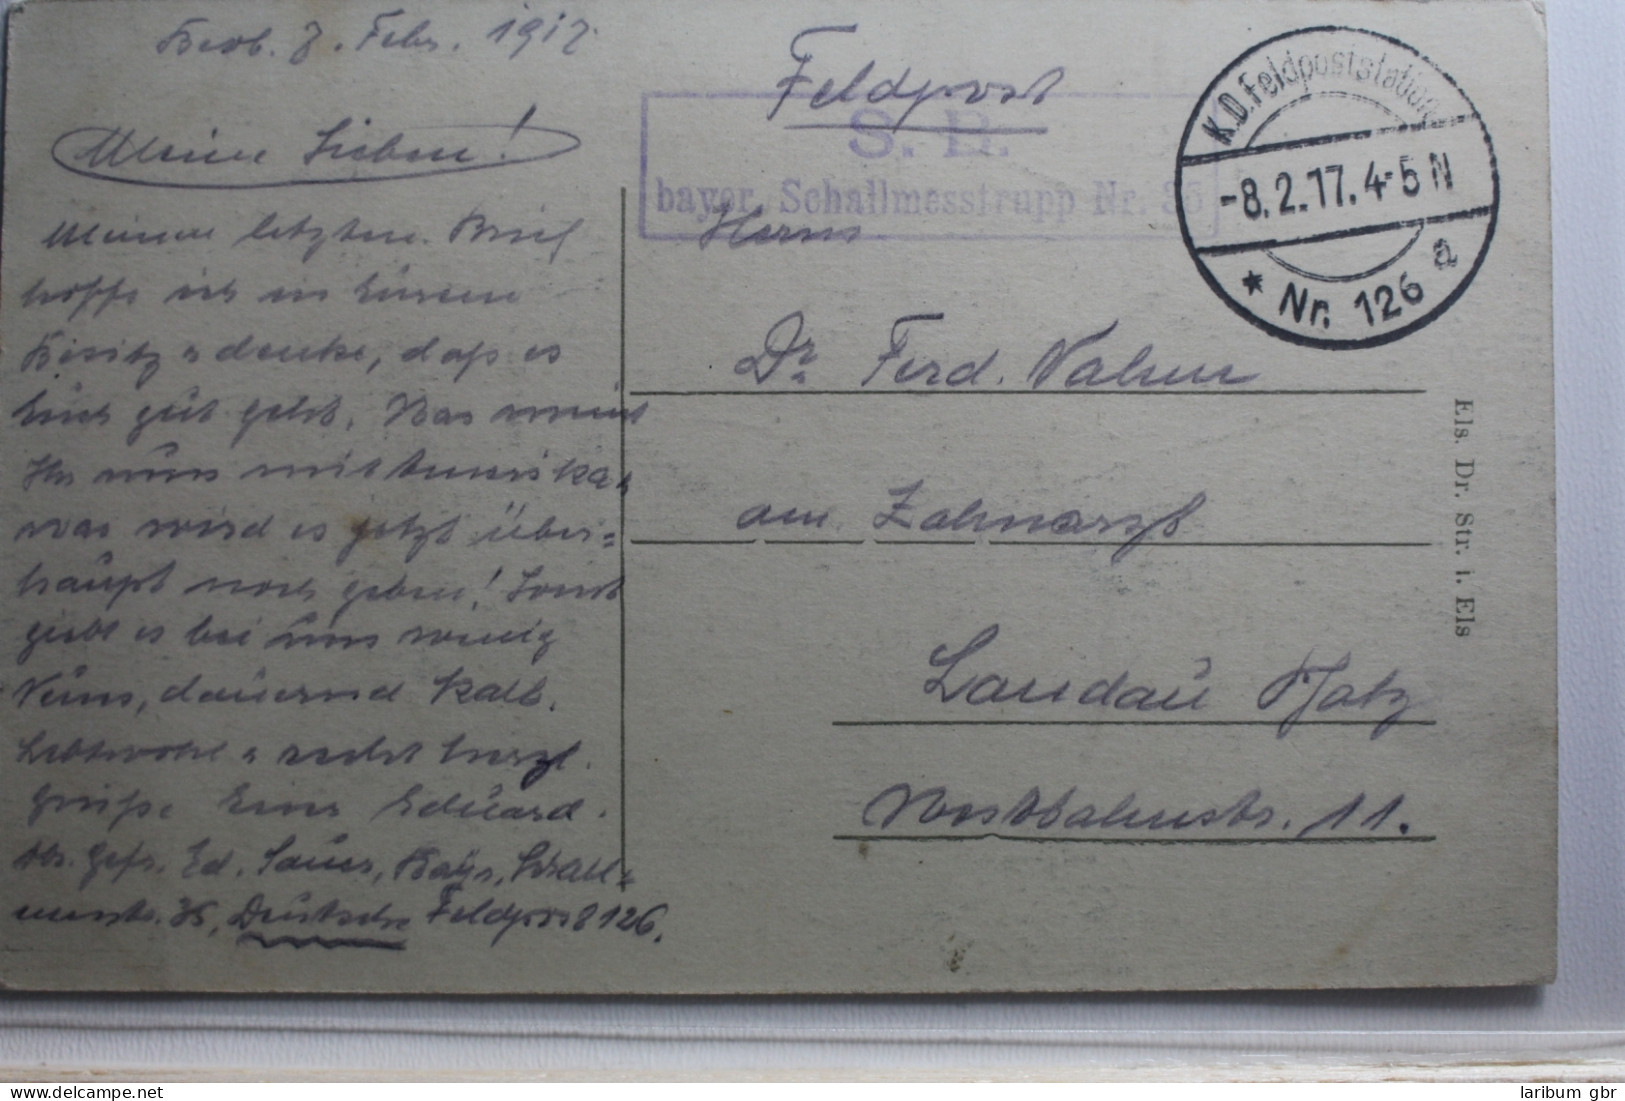 Beob. 8. Febr. 1917.
Meine Lieben!
Meinen letzten Brief
hoffe ich in Eurem
Besitz u denke, daß es
Euch gut geht. Was meint
Ihr nun mit Amerika,
was wird es jetzt über=
haupt noch geben! Sonst
giebt es bei uns wenig
Neues, dauernd kalt.
Lebtwohl u recht herzl.
Grüße Euer Eduard.
Gefr. Ed. Sauer, Bayr. Schall=
messtr. 35, Deutsche Feldpost 126.
Feldpost
S. B.
bayer. Schallmesstrupp Nr. 35
K.D. Feldpoststation
-8.2.17. 4-5 N
* Nr. 126 a
Herrn
Dr. Ferd. Nahm
am. Zahnarzt
Landau Pfalz
Westbahnstr. 11.
Els. Dr. Str. i. Els
laribum gbr